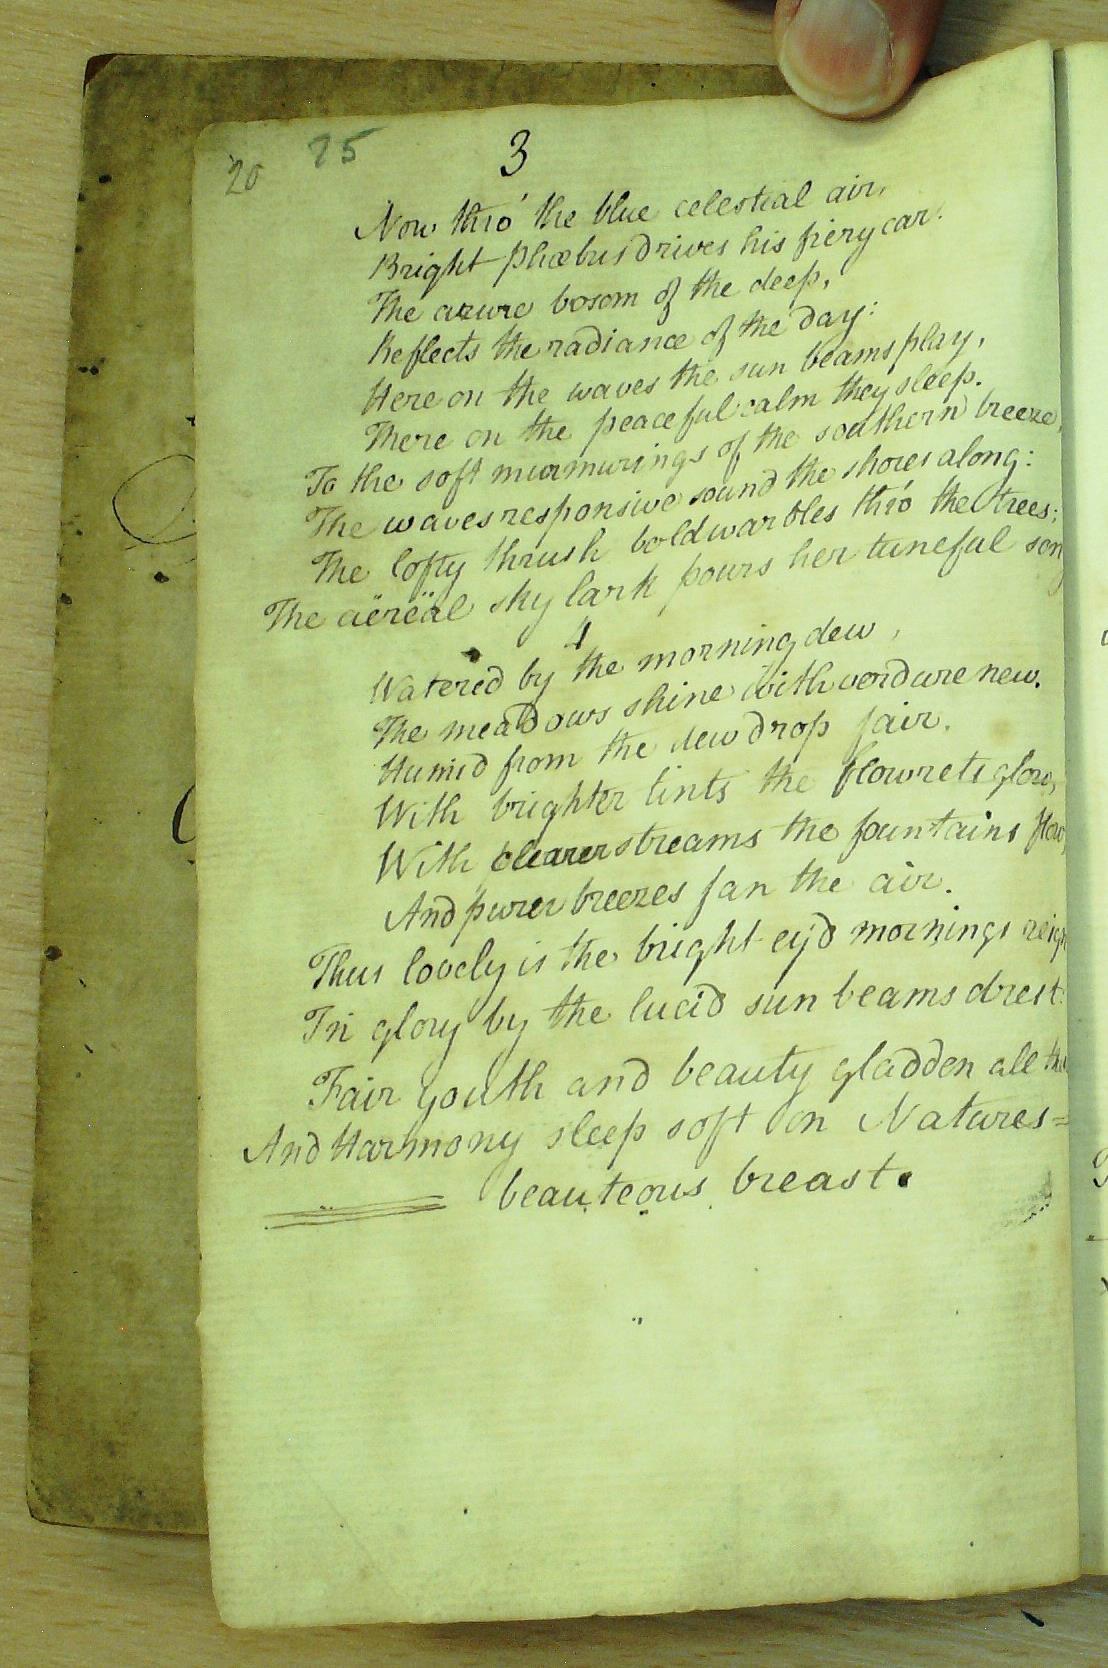 20 75
3
Now thro' the blue celestial air,
Bright Phœbus drives his fiery car.
The azure bosom of the deep,
Reflects the radiance of the day:
Here on the waves the sun beams play,
There on the peaceful calm they sleep.
To the soft murmurings of the southern breeze,
The waves responsive sound the shores along:
The lofty thrush bold warbles thro' the trees;
The aëreäl sky lark pours her tuneful son
4
Watered by the morning dew,
The meadows shine with verdure new.
Humid from the dew drop fair.
With brighter tints the flowrets glow,
With clearer streams the fountains flow,
And purer breezes fan the air.
Thus lovely is the bright ey'd mornings reign
In glory by the lucid sun beams drest:
Fair youth and beauty gladden all
And Harmony sleep soft on Natures=
beauteous breast.